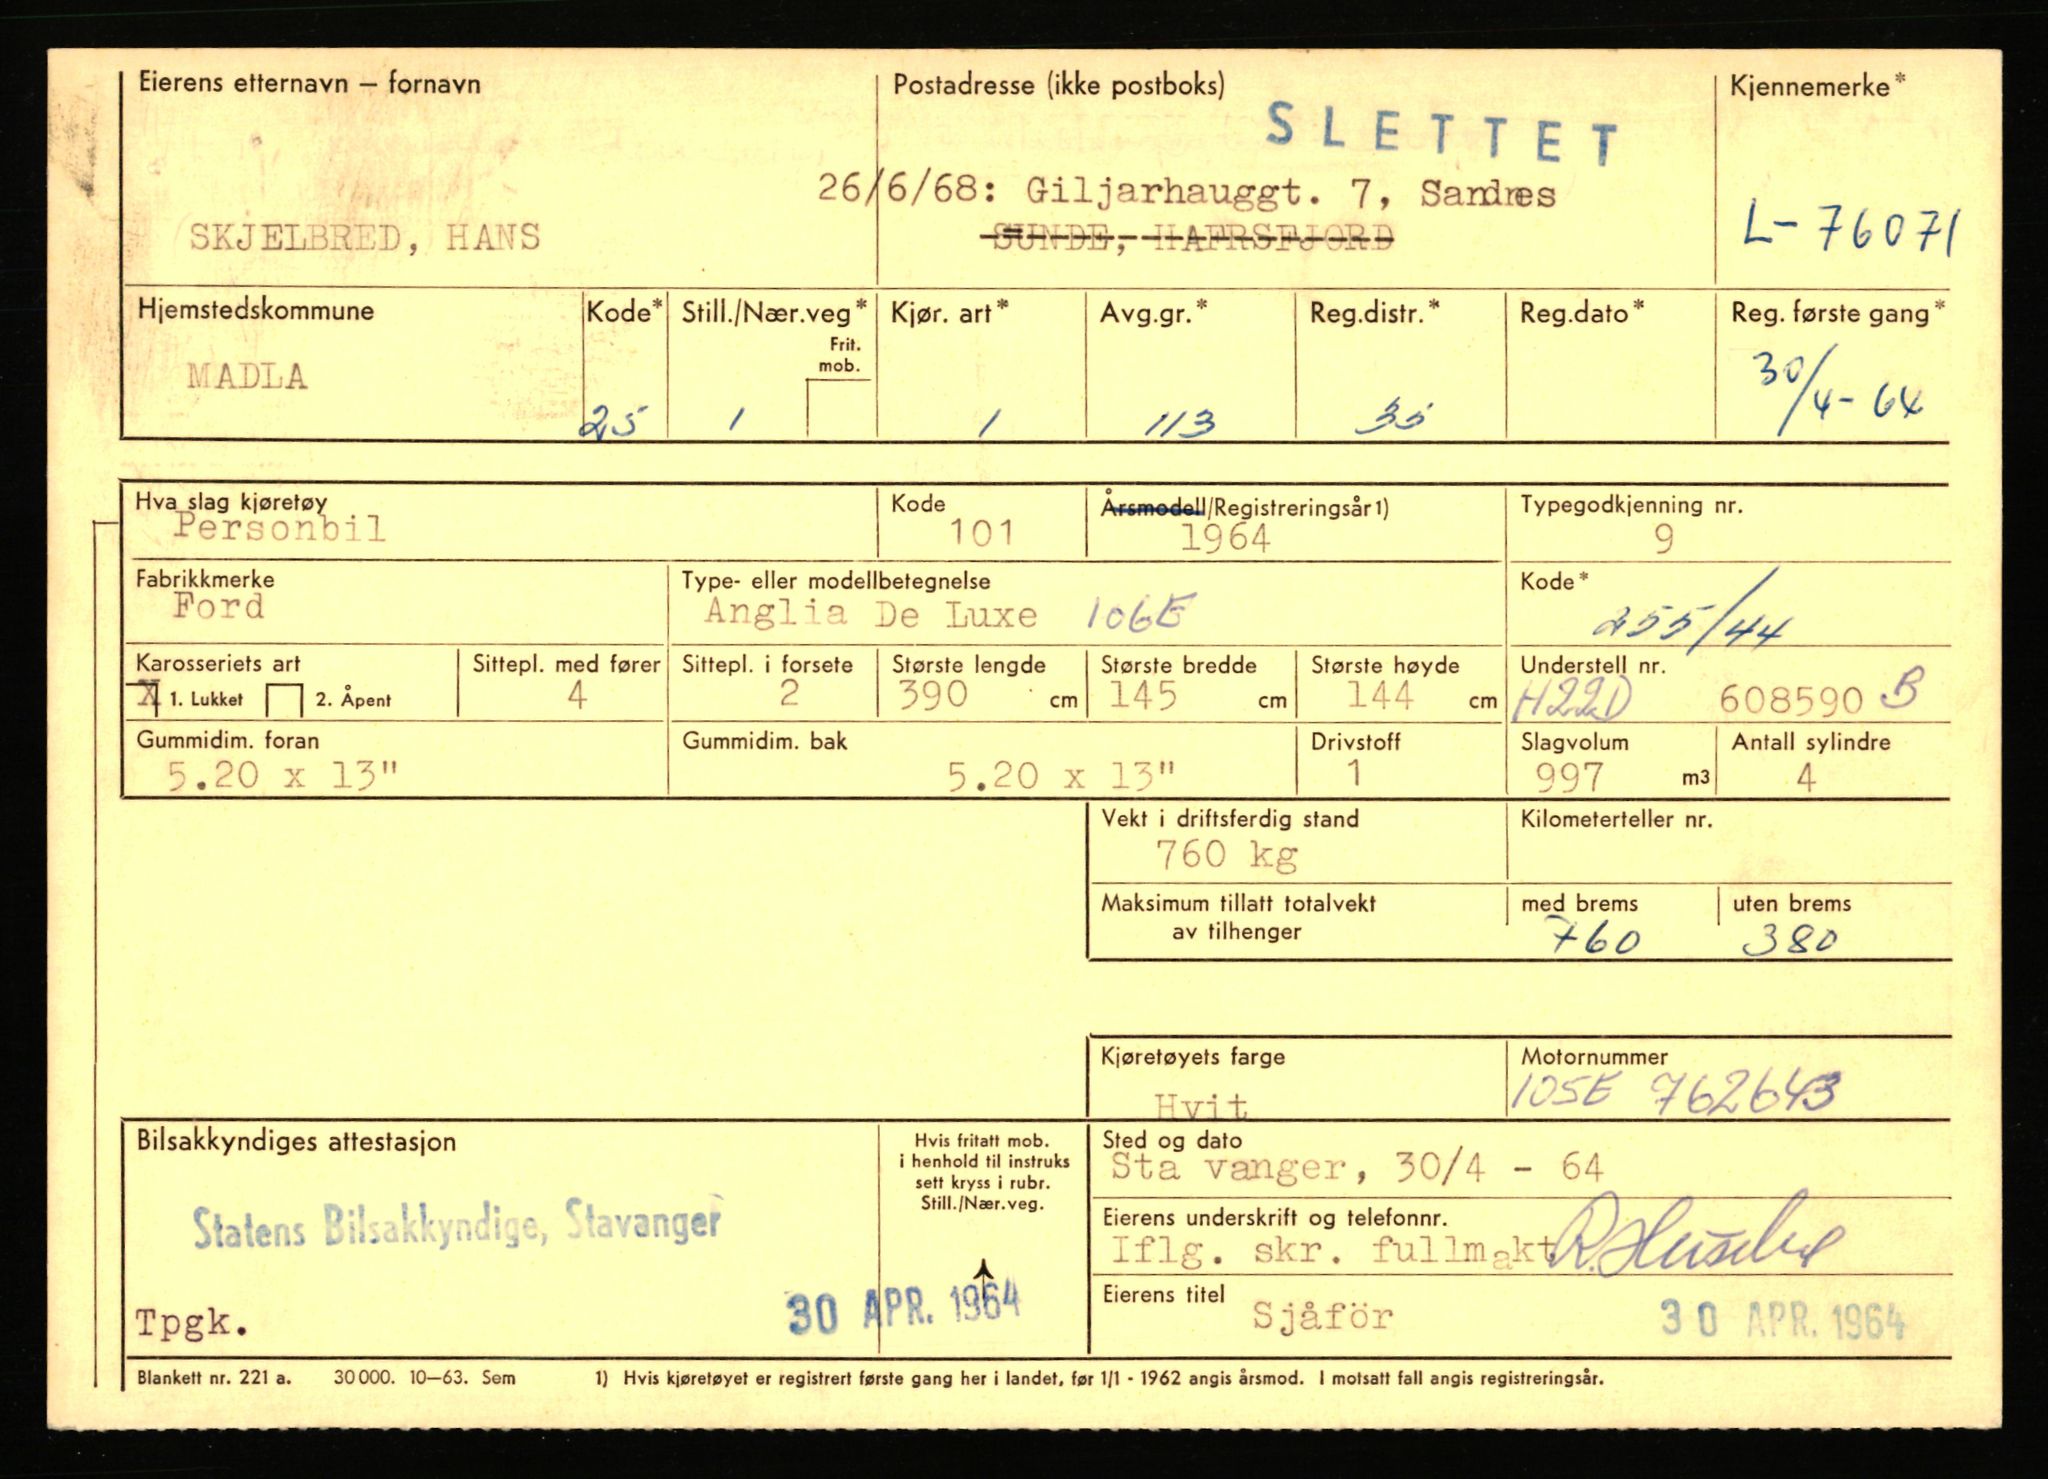 Eierens etternavn – fornavn
Postadresse (ikke postboks)
Kjennemerke*
SLETTET
26/6/68: Giljarhauggt. 7, Sandnes
SKJELBRED, HANS
SUNDE, HAFRSFJORD
L-76071
Hjemstedskommune Kode* Still./Nær.veg* Kjør. art* Avg.gr.* Reg.distr.* Reg.dato* Reg. første gang*
Frit.
mob.
MADLA
25 1 1 113 35 30/4-64
Hva slag kjøretøy Kode Årsmodell/Registreringsår1) Typegodkjenning nr.
Personbil 101 1964 9
Fabrikkmerke Type- eller modellbetegnelse Kode*
Ford Anglia De Luxe 106E 255/44
Karosseriets art Sittepl. med fører Sittepl. i forsete Største lengde Største bredde Største høyde Understell nr.
X 1. Lukket 2. Åpent 4 2 390 cm 145 cm 144 cm H22D 608590 B
Gummidim. foran Gummidim. bak Drivstoff Slagvolum Antall sylindre
5.20 x 13" 5.20 x 13" 1 997 m3 4
Vekt i driftsferdig stand Kilometerteller nr.
760 kg
Maksimum tillatt totalvekt med brems uten brems
av tilhenger 760 380
Kjøretøyets farge Motornummer
Hvit 105E 762643
Bilsakkyndiges attestasjon
Hvis fritatt mob.
i henhold til instruks
sett kryss i rubr.
Still./Nær.veg.
Sted og dato
Sta vanger, 30/4 - 64
Statens Bilsakkyndige, Stavanger
Eierens underskrift og telefonnr.
Iflg. skr. fullmakt
Eierens titel
Tpgk. 30 APR. 1964 Sjåför 30 APR. 1964
Blankett nr. 221 a. 30 000. 10–63. Sem 1) Hvis kjøretøyet er registrert første gang her i landet, før 1/1 - 1962 angis årsmod. I motsatt fall angis registreringsår.